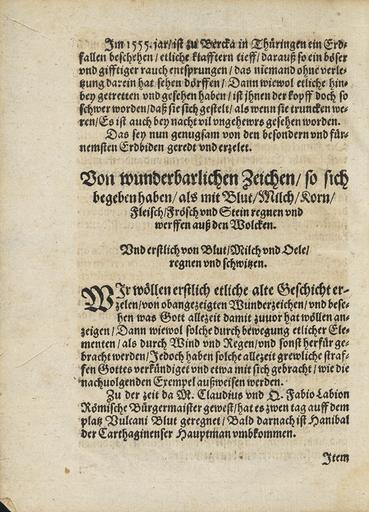 Im 1555. jar/ist zu Bercka in Thüringen ein Erd-
fallen beschehen/etliche klafftern tieff/darauß so ein böser
vnd gifftiger rauch entsprungen/das niemand ohne verle-
tzung darein hat sehen dörffen/Dann wiewol etliche hin-
bey getretten vnd gesehen haben/ist ihnen der kopff doch so
schwer worden/daß sie sich gestelt/als wenn sie truncken we-
ren/Es ist auch bey nacht vil vngehewrs gesehen worden.
Das sey nun genugsam von den besondern vnd für-
nemsten Erdbiden geredt vnd erzelet.
Von wunderbarlichen Zeichen/so sich
begeben haben/als mit Blut/Milch/Korn/
Fleisch/Frösch vnd Stein regnen vnd
werffen auß den Wolcken.
Vnd erstlich von Blut/Milch vnd Oele/
regnen vnd schwitzen.
WIr wöllen erstlich etliche alte Geschicht er-
zelen/von obangezeigten Wunderzeichen/vnd bese-
hen was Gott allezeit damit zuuor hat wöllen an-
zeigen/Dann wiewol solche durch bewegung etlicher Ele-
menten/als durch Wind vnd Regen/vnd sonst herfür ge-
bracht werden/Jedoch haben solche allezeit grewliche straf-
fen Gottes verkündiget vnd etwa mit sich gebracht/wie die
nachuolgenden Exempel außweisen werden.
Zu der zeit da M. Claudius vnd Q. Fabio Labion
Römische Bürgermaister gewest/hat es zwen tag auff dem
platz Vulcani Blut geregnet/Bald darnach ist Hanibal
der Carthaginenser Hauptman vmbkommen.
Item